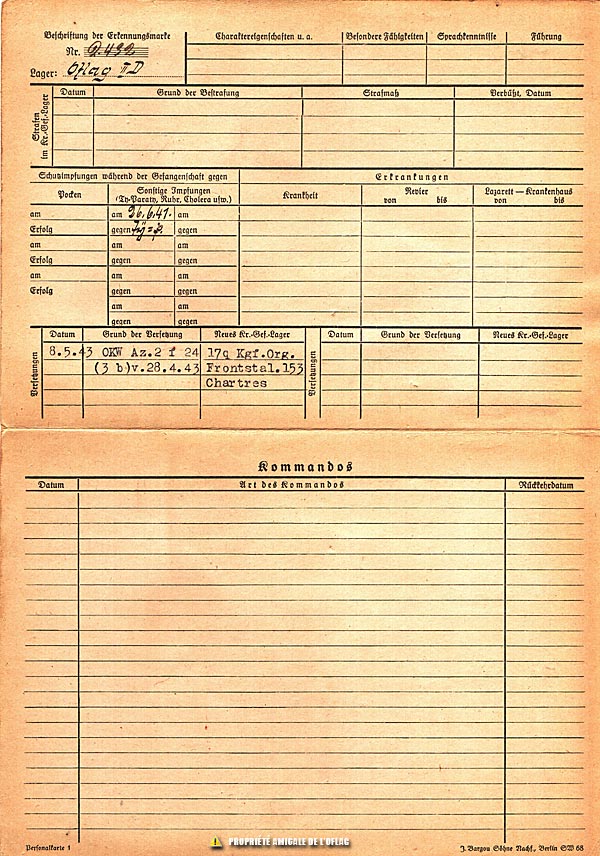 Beschriftung der Erkennungsmarke
Nr. 0.432
Lager: Oflag II D
Charaktereigenschaften u. a.
Besondere Fähigkeiten
Sprachkenntnisse
Führung
Strafen im Kr.-Gef.-Lager
Datum
Grund der Bestrafung
Strafmaß
Verbüßt, Datum
Schutzimpfungen während der Gefangenschaft gegen
Pocken
Sonstige Impfungen
(Ty-Paraty, Ruhr, Cholera usw.)
am am 26.6.41. am
Erfolg gegen gegen
am am am
Erfolg gegen gegen
am am am
Erfolg gegen gegen
am am
gegen gegen
Erkrankungen
Krankheit
Revier
von bis
Lazarett — Krankenhaus
von bis
Versetzungen
Datum Grund der Versetzung Neues Kr.-Gef.-Lager
8.5.43 OKW Az.2 f 24 17q Kgf.Org.
(3 b)v.28.4.43 Frontstal.153
Chartres
Versetzungen
Datum Grund der Versetzung Neues Kr.-Gef.-Lager
Kommandos
Datum Art des Kommandos Rückkehrdatum
Personalkarte 1
PROPRIÉTÉ AMICALE DE L'OFLAG
J. Bargou Söhne Nachf., Berlin SW 68